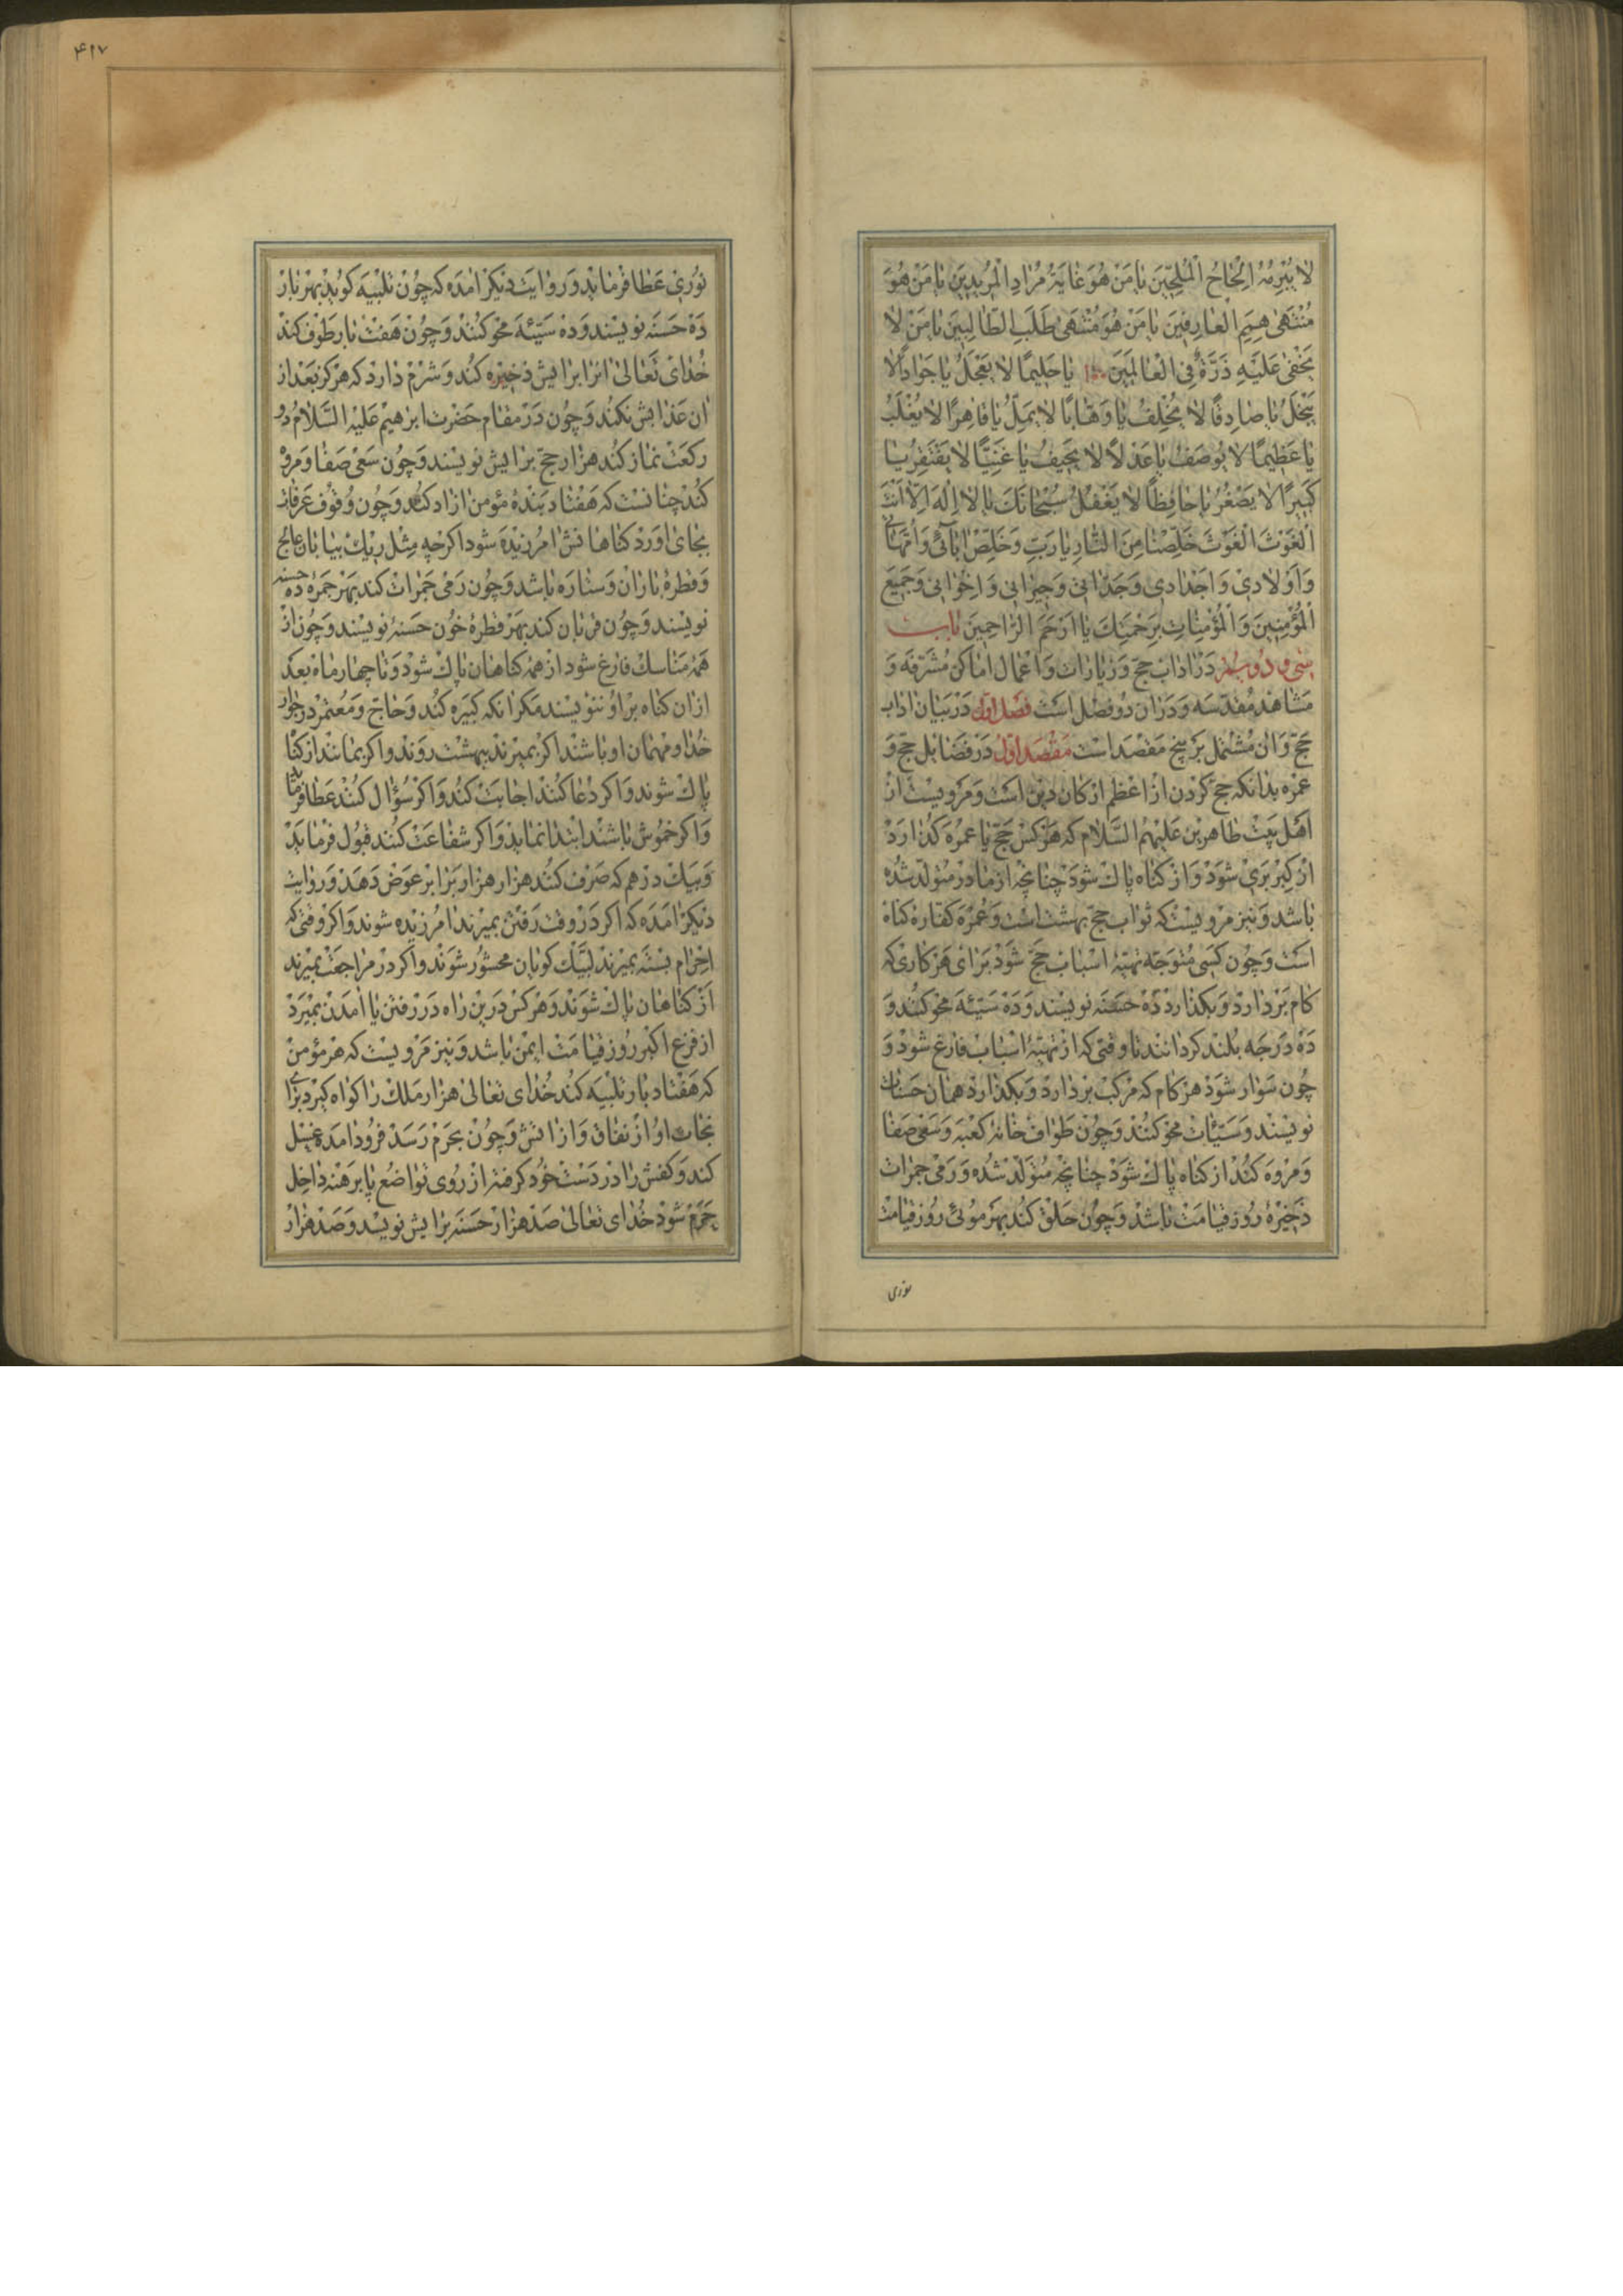 لا يُبْرِمُهُ اِلْحاحُ الْمُلِحّينَ يا مَنْ هُوَ غايَةُ مُرادِ الْمُريدينَ يا مَنْ هُوَ
مُنْتَهى هِمَمِ الْعارِفينَ يا مَنْ هُوَ مُنْتَهى طَلَبِ الطّالِبينَ يا مَنْ لا
يَخْفى عَلَيْهِ ذَرَّةٌ فِى الْعالَمينَ ١٠٠ يا حَليمًا لا يَعْجَلُ يا جَوادًا لا
يَبْخَلُ يا صادِقًا لا يُخْلِفُ يا وَهّابًا لا يَمَلُّ يا قاهِرًا لا يُغْلَبُ
يا عَظيمًا لا يُوصَفُ يا عَدْلًا لا يَحيفُ يا غَنِيًّا لا يَفْتَقِرُ يا
كَبيرًا لا يَصْغُرُ يا حافِظًا لا يَغْفُلُ سُبْحانَكَ يا لا اِلٰهَ اِلّا اَنْتَ
اَلْغَوْثَ الْغَوْثَ خَلِّصْنا مِنَ النّارِ يا رَبِّ وَخَلِّصْ اٰبآئى وَاُمَّهاتى
وَاَوْلادى وَاَجْدادى وَجَدّاتى وَجيرانى وَاِخْوانى وَجَميعَ
الْمُؤْمِنينَ وَالْمُؤْمِناتِ بِرَحْمَتِكَ يا اَرْحَمَ الرّاحِمينَ باب
سى و دويم در اداب حج و زيارات و اعمال اماكن مشرفه و
مشاهد مقدسه و در ان دو فصل است فصل اول در بيان اداب
حج و ان مشتمل بر پنج مقصد است مقصد اول در فضايل حج و
عمره بدانكه حج كردن از اعظم اركان دين است و مرويست از
اهل بيت طاهرين عليهم السلام كه هر كس حج يا عمره كذارد
از كبر برى شود و از كناه پاك شود چنانچه از مادر متولد شده
باشد و نيز مرويست كه ثواب حج بهشت است و عمره كفاره كناه
است و چون كسى متوجه تهيه اسباب حج شود براى هر كارى كه
كام بردارد و بكذارد ده حسنه نويسند و ده سيئه محو كنند و
ده درجه بلند كردانند تا وقتى كه از تهيه اسباب فارغ شود و
چون سوار شود هر كام كه مركب بردارد و بكذارد همان حسنات
نويسند و سيئات محو كنند و چون طواف خانه كعبه و سعى صفا
و مروه كند از كناه پاك شود چنانچه متولد شده و رمى جمرات
ذخيره روز قيامت باشد و چون حلق كند بهر موئى روز قيامت
نورى
٤١٧
نورى عطا فرمايد و روايت ديكر امده كه چون تلبيه كويد بهر بار
ده حسنه نويسند و ده سيئه محو كنند و چون هفت بار طوف كند
خداى تعالى انرا برايش ذخيره كند و شرم دارد كه هركز بعد از
ان عذابش نكند و چون در مقام حضرت ابرهيم عليه السلام دو
ركعت نماز كند هزار حج برايش نويسند و چون سعى صفا و مروه
كند چنانست كه هفتاد بنده مؤمن ازاد كند و چون وقوف عرفات
بجاى اورد كناهانش امرزيده شود اكرچه مثل ريك بيابان عالج
و قطره باران و ستاره باشد و چون رمى جمرات كند بهر جمره ده حسنه
نويسند و چون قربان كند بهر قطره خون حسنه نويسند و چون از
همه مناسك فارغ شود از همه كناهان پاك شود و تا چهار ماه بعد
ازان كناه بر او ننويسند مكر انكه كبيره كند و حاج و معتمر در جوار
خدا و مهمان او باشند اكر بميرند ببهشت روند و اكر بمانند از كناه
پاك شوند و اكر دعا كنند اجابت كند و اكر سؤال كنند عطا فرمايد
و اكر خموش باشند ابتدا نمايد و اكر شفاعت كنند قبول فرمايد
و بيك درهم كه صرف كنند هزار هزار برابر عوض دهد و روايت
ديكر امده كه اكر در وقت رفتن بميرند امرزيده شوند و اكر وقتى كه
احرام بسته بميرند لبيك كويان محشور شوند و اكر در مراجعت بميرند
از كناهان پاك شوند و هر كس درين راه در رفتن يا امدن بميرد
از فزع اكبر روز قيامت ايمن باشد و نيز مرويست كه هر مؤمن
كه هفتاد بار تلبيه كند خداى تعالى هزار ملك را كواه كيرد براى
نجات او از نفاق و از اتش و چون بحرم رسد فرود امده غسل
كند و كفش را در دست خود كرفته از روى تواضع پا برهنه داخل
حرم شود خداى تعالى صد هزار حسنه برايش نويسد و صد هزار